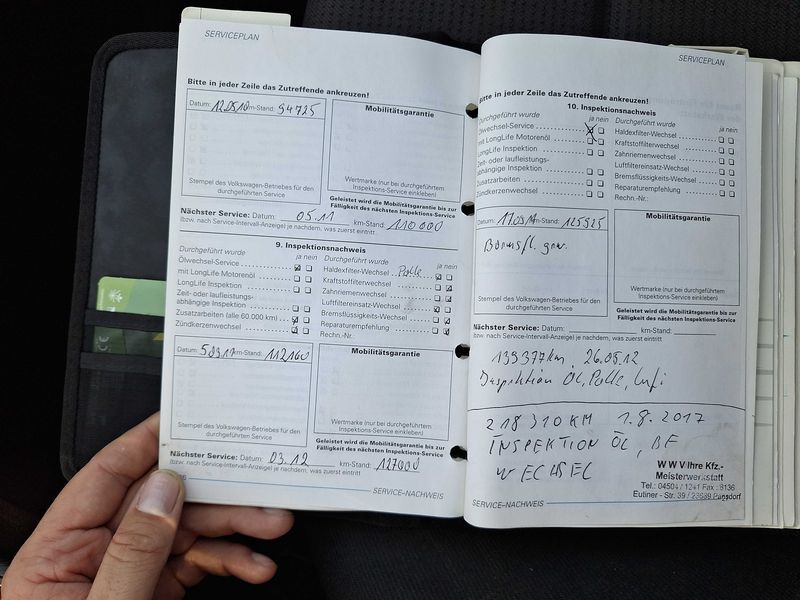 SERVICEPLAN
Bitte in jeder Zeile das Zutreffende ankreuzen!
Datum: 12.05.10 km-Stand: 94725
Mobilitätsgarantie
Stempel des Volkswagen-Betriebes für den
durchgeführten Service
Wertmarke (nur bei durchgeführtem
Inspektions-Service einkleben)
Geleistet wird die Mobilitätsgarantie bis zur
Fälligkeit des nächsten Inspektions-Service
Nächster Service: Datum: 05.11 km-Stand: 110000
(bzw. nach Service-Intervall-Anzeige) je nachdem, was zuerst eintritt
9. Inspektionsnachweis
Durchgeführt wurde ja nein
Ölwechsel-Service
mit LongLife Motorenöl
LongLife Inspektion
Zeit- oder laufleistungs-
abhängige Inspektion
Zusatzarbeiten (alle 60.000 km)
Zündkerzenwechsel
Durchgeführt wurde ja nein
Haldexfilter-Wechsel Polle
Kraftstoffilterwechsel
Zahnriemenwechsel
Luftfiltereinsatz-Wechsel
Bremsflüssigkeits-Wechsel
Reparaturempfehlung
Rechn.-Nr.
Datum: km-Stand: 112160
Mobilitätsgarantie
Stempel des Volkswagen-Betriebes für den
durchgeführten Service
Wertmarke (nur bei durchgeführtem
Inspektions-Service einkleben)
Geleistet wird die Mobilitätsgarantie bis zur
Fälligkeit des nächsten Inspektions-Service
Nächster Service: Datum: 03.12 km-Stand: 127000
(bzw. nach Service-Intervall-Anzeige) je nachdem, was zuerst eintritt
SERVICE–NACHWEIS
SERVICEPLAN
Bitte in jeder Zeile das Zutreffende ankreuzen!
10. Inspektionsnachweis
Durchgeführt wurde ja nein
Ölwechsel-Service
mit LongLife Motorenöl
LongLife Inspektion
Zeit- oder laufleistungs-
abhängige Inspektion
Zusatzarbeiten
Zündkerzenwechsel
Durchgeführt wurde ja nein
Haldexfilter-Wechsel
Kraftstoffilterwechsel
Zahnriemenwechsel
Luftfiltereinsatz-Wechsel
Bremsflüssigkeits-Wechsel
Reparaturempfehlung
Rechn.-Nr.
Datum: km-Stand: 125525
Mobilitätsgarantie
Bremsfl.
Stempel des Volkswagen-Betriebes für den
durchgeführten Service
Wertmarke (nur bei durchgeführtem
Inspektions-Service einkleben)
Geleistet wird die Mobilitätsgarantie bis zur
Fälligkeit des nächsten Inspektions-Service
Nächster Service: Datum: km-Stand:
(bzw. nach Service-Intervall-Anzeige) je nachdem, was zuerst eintritt
139377km 26.09.12
Inspektion Öl, Polle, Lufi
218310 KM 1.8.2017
INSPEKTION ÖL, BF
WECHSEL
WWV Ihre Kfz.-
Meisterwerkstatt
Tel.: 04504 / 1241 Fax : 8136
Eutiner - Str. 39 / 23689 Pansdorf
SERVICE–NACHWEIS